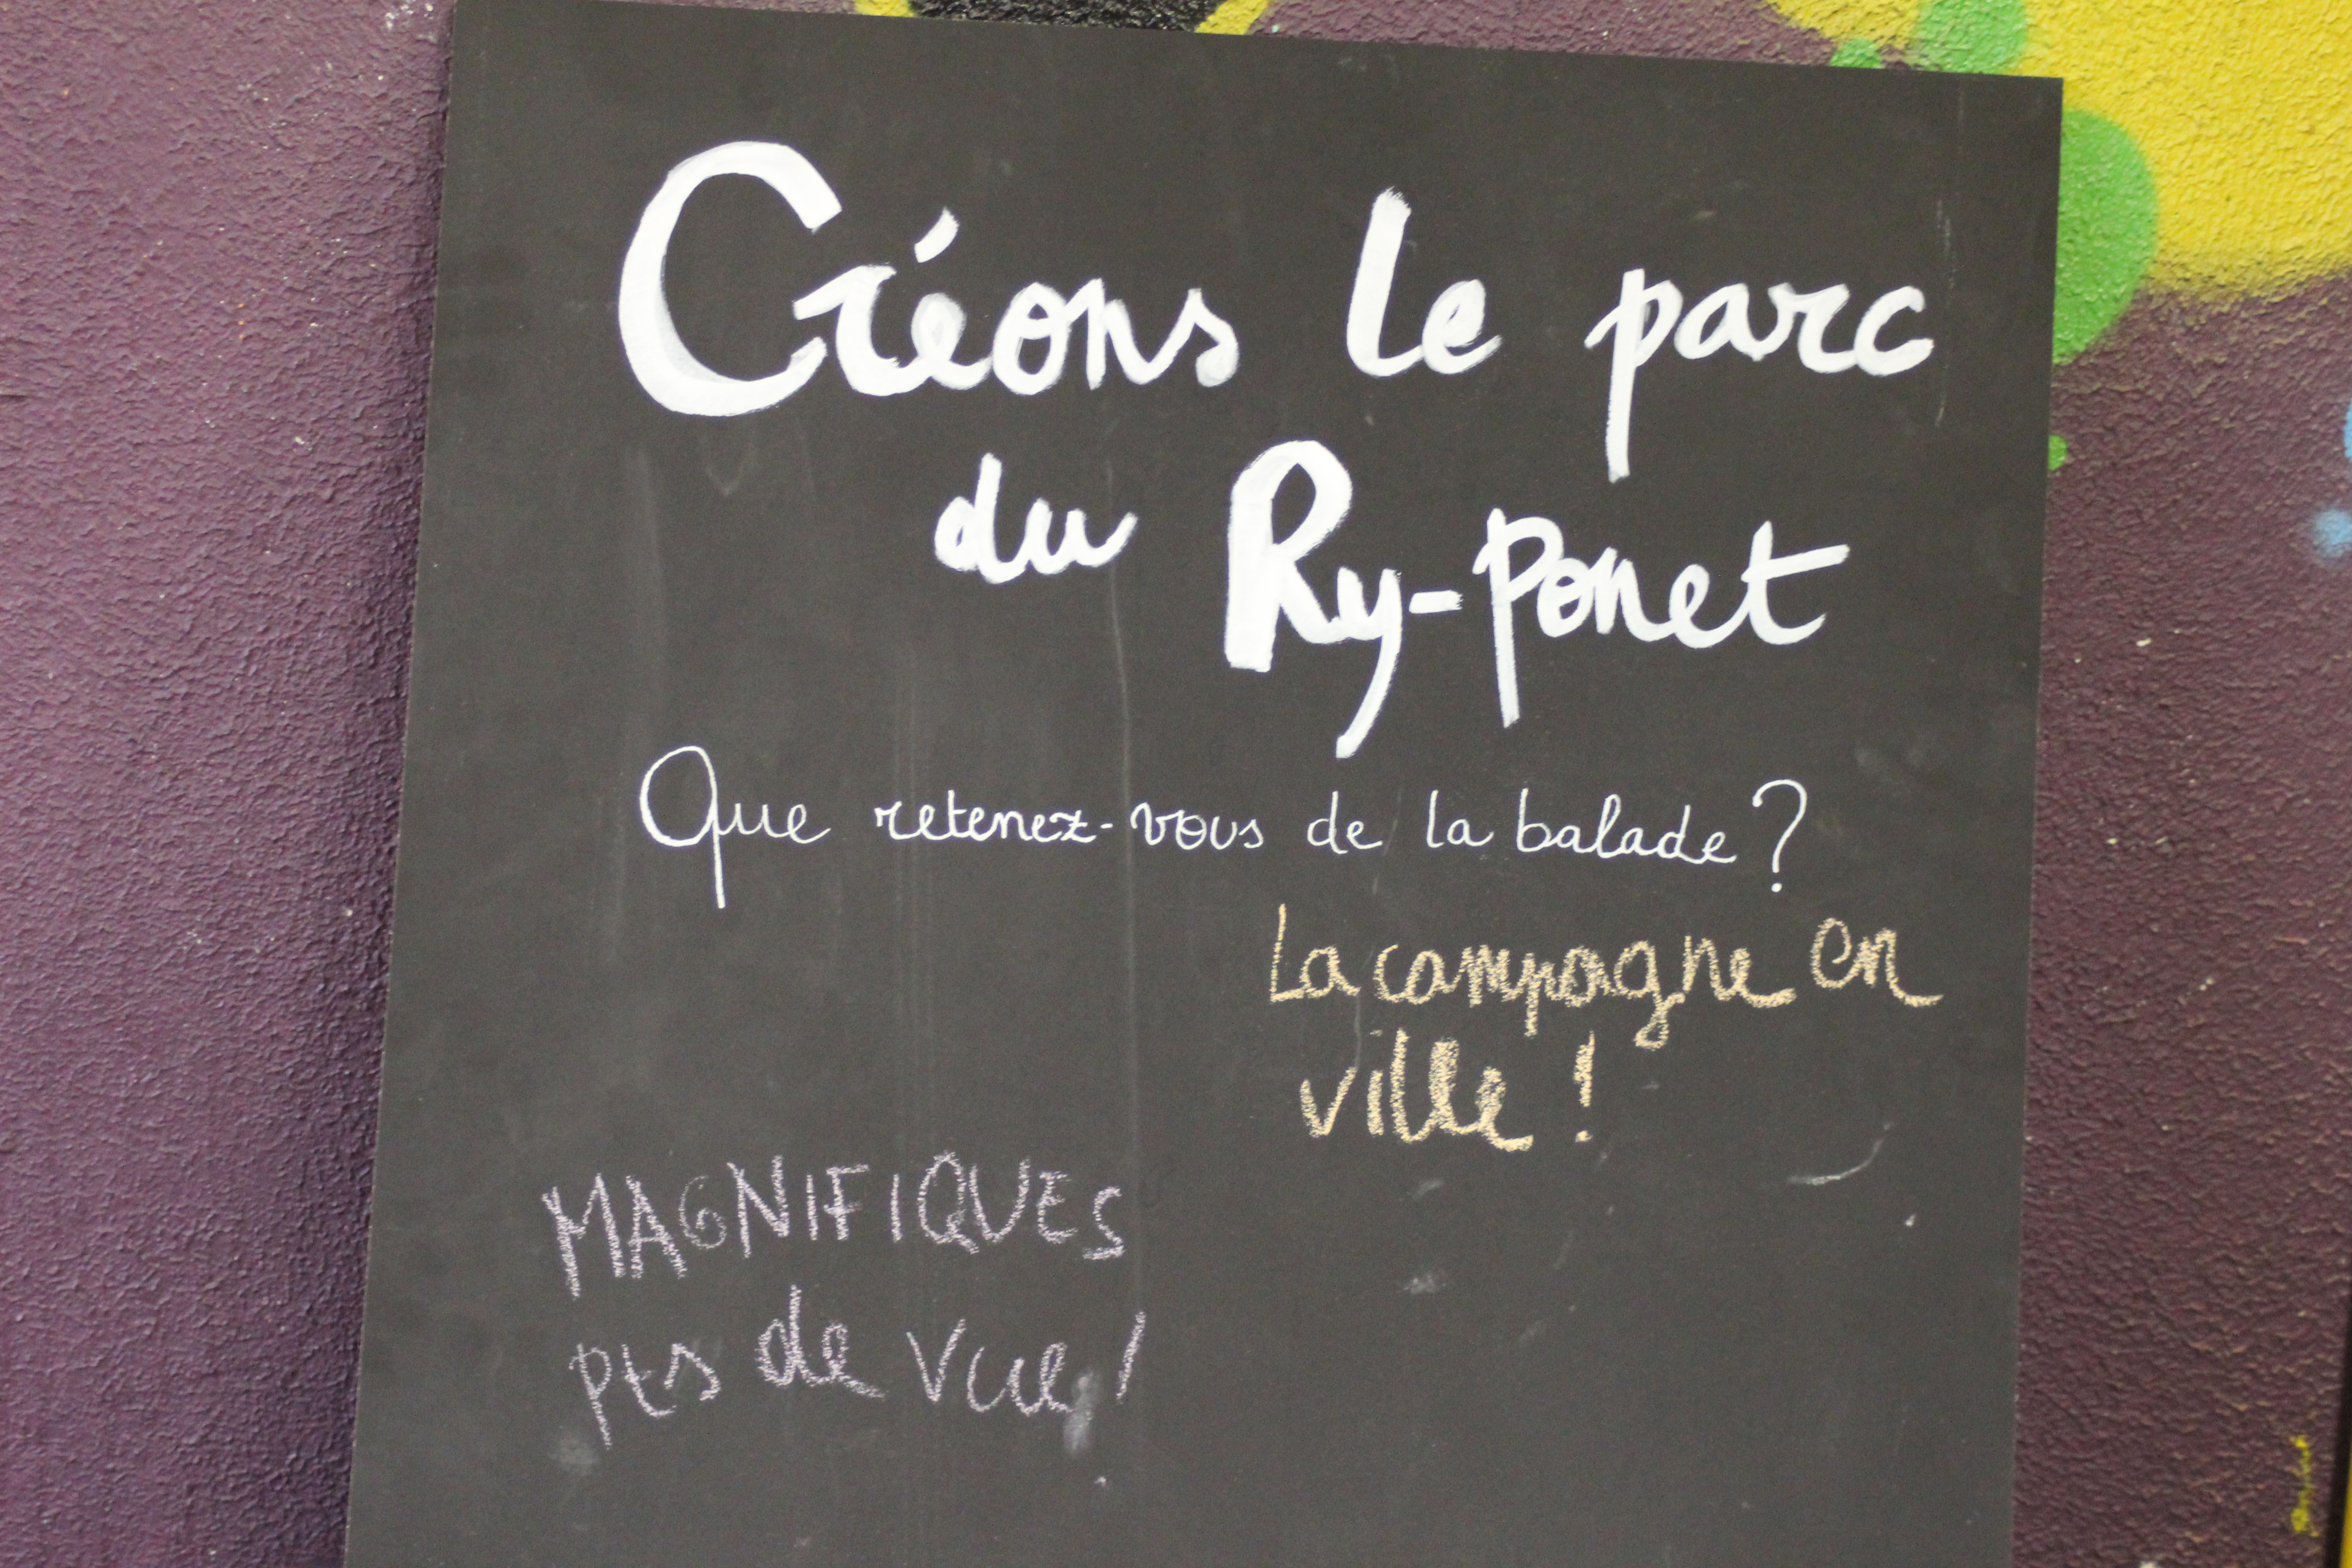 Créons le parc
du Ry-Ponet
Que retenez-vous de la balade?
La campagne en
ville !
MAGNIFIQUES
pts de vue !